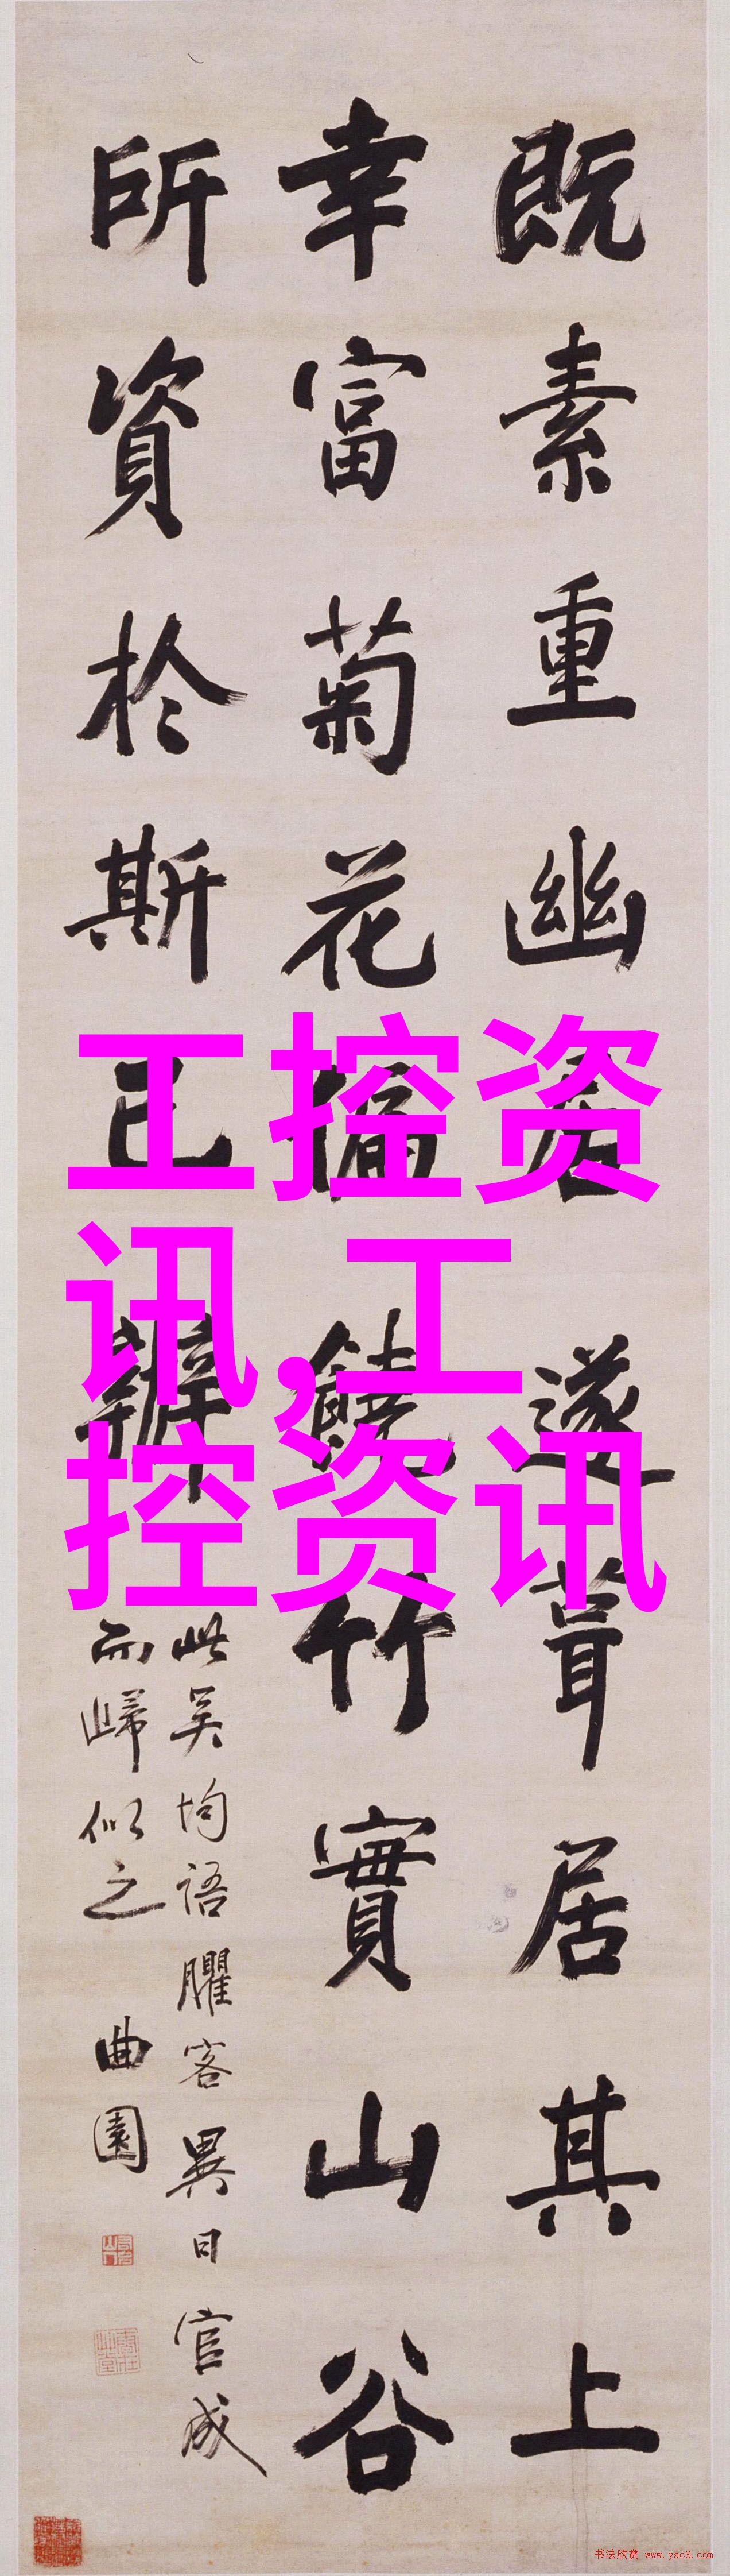 既素重幽居遂葺居其上
幸富菊花偏饒竹實山谷
所資於斯已辦
此吴均語臞客異日官成
而歸似之
曲園
工控资
讯,工
控资讯
书法欣赏 www.yac8.com